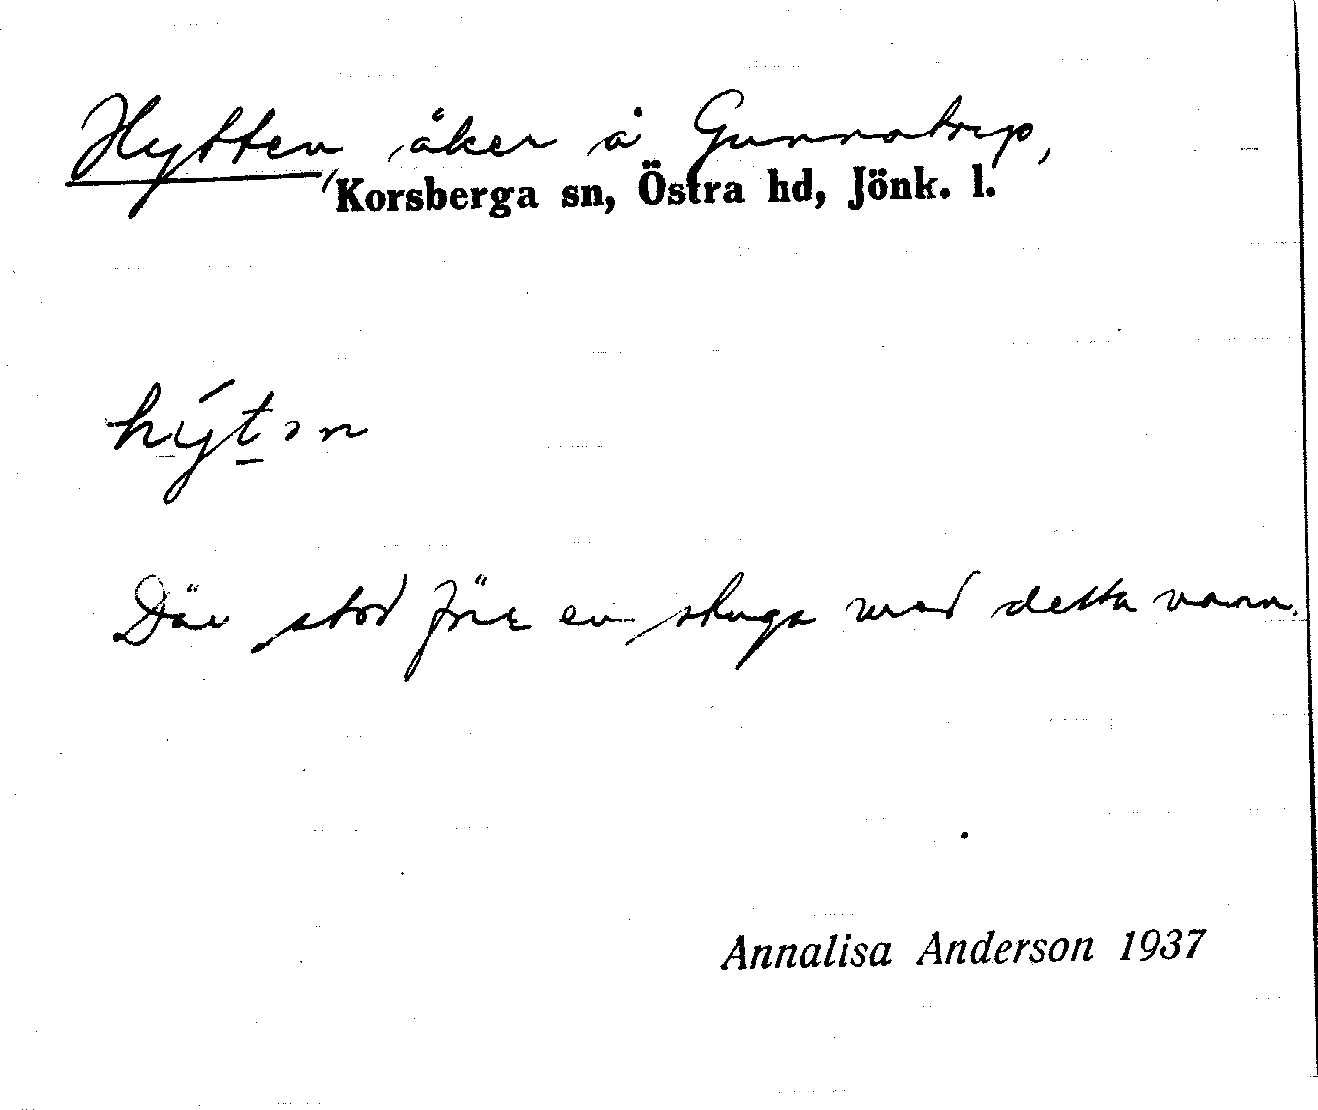 Hytten, åker å Gunnatrup,
Korsberga sn, Östra hd, Jönk. l.
hýtən
Där stod förr en stuga med detta namn.
Annalisa Anderson 1937